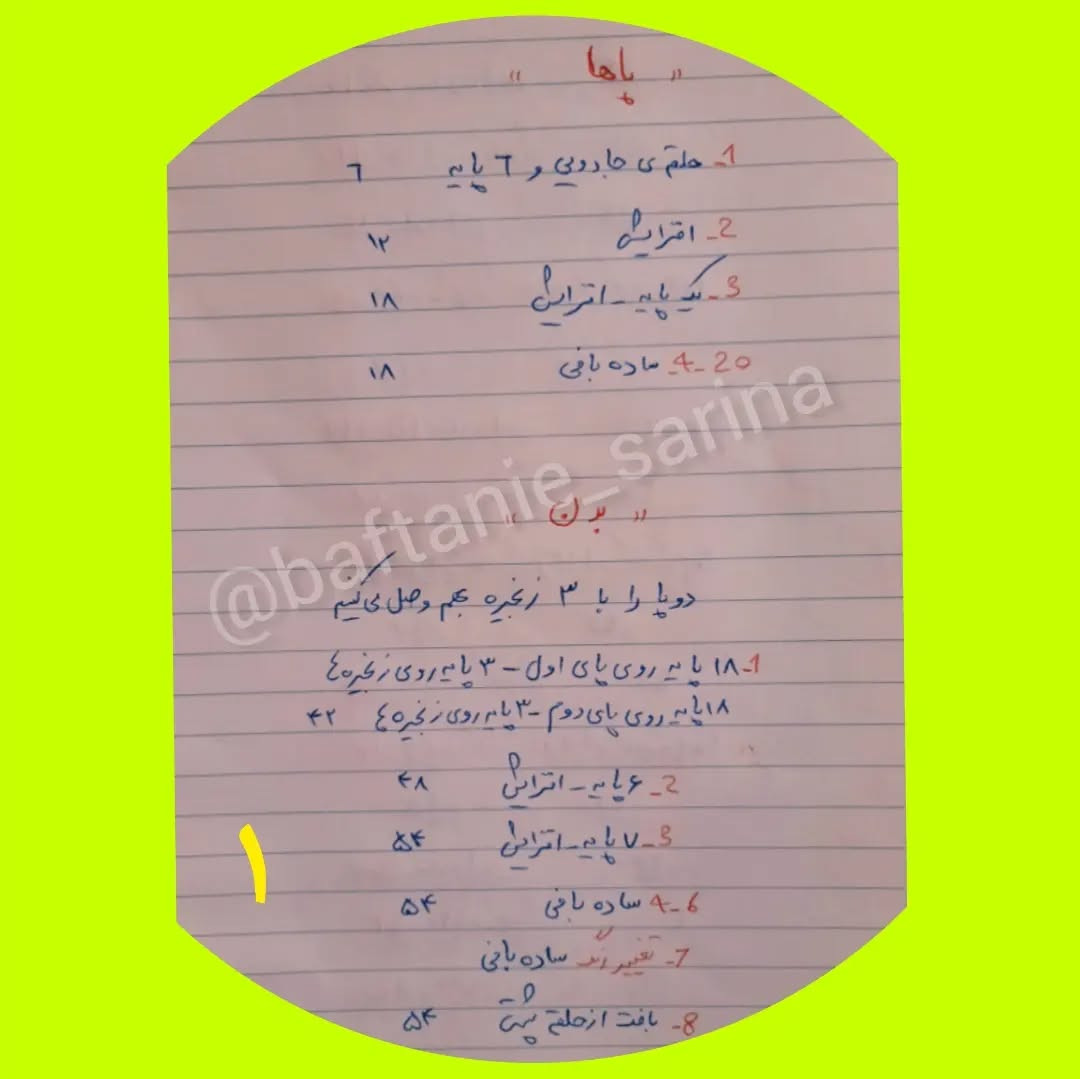 " پاها "
1- حلقه ی جادویی و 6 پایه 6
2- افزایش ۱۲
3- یک پایه - افزایش ۱۸
4-20 ساده بافی ۱۸
@baftanie_sarina
" بدن "
دو پا را با ۳ زنجیره بهم وصل می کنیم
1- ۱۸ پایه روی پای اول - ۳ پایه روی زنجیره ها
۱۸ پایه روی پای دوم - ۳ پایه روی زنجیره ها ۴۲
2- ۶ پایه - افزایش ۴۸
3- ۷ پایه - افزایش ۵۴
۱
4-6 ساده بافی ۵۴
7- تغییر رنگ ساده بافی
8- بافت از حلقه پشتی ۵۴